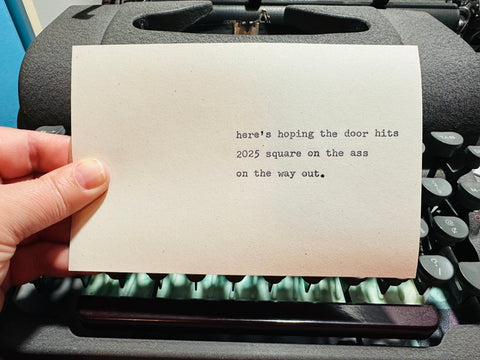 here's hoping the door hits
2025 square on the ass
on the way out.